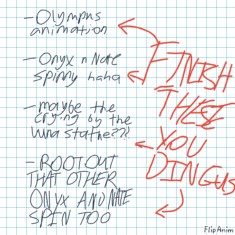 - Olympus
animation
- Onyx n Nate
spinny haha
- maybe the
crying by the
luna statue???
- ROOT OUT
THAT OTHER
ONYX AND NATE
SPIN TOO
FINISH
THESE
YOU
DINGUS
FlipAnim